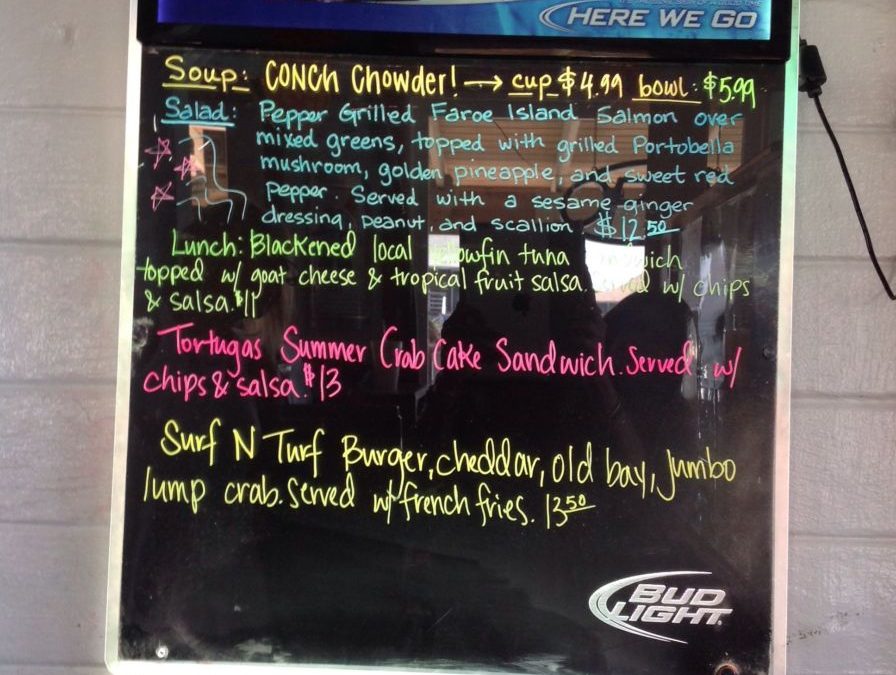 HERE WE GO
Soup: CONCH Chowder! → cup $4.99 bowl: $5.99
Salad: Pepper Grilled Faroe Island Salmon over
mixed greens, topped with grilled Portobella
mushroom, golden pineapple, and sweet red
pepper. Served with a sesame ginger
dressing, peanut, and scallion $12.50
Lunch: Blackened local tuna
topped w/ goat cheese & tropical fruit salsa. Served w/ chips
& salsa. $11
Tortugas Summer Crab Cake Sandwich. Served w/
chips & salsa. $13
Surf N Turf Burger, cheddar, old bay, Jumbo
lump crab. Served w/ french fries. 13.50
BUD
LIGHT